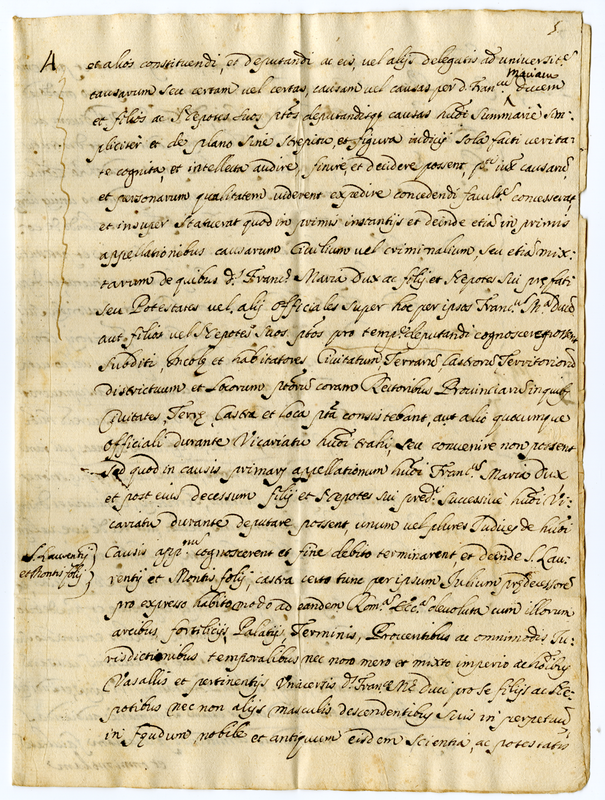 5
A
et alios constituendi, et deputandi ac eis, vel alijs delegatis ad universit.e
Mariam
causarum seu certam vel certas, causam vel causas per d. Fran.cum Ducem
et filios ac Nepotes suos ptos deputandosq causas huõi Summarie sim-
pliciter et de plano sine strepitu, et figura iudicij sola facti verita-
te cognita, et intellecta audire, finire, et decidere possent, iux causarũ
et personarum qualitatem viderent expedire concedendi facult.e concesserat
et insuper statuerat quod in primis instantijs et deinde etiã in primis
appellationibus causarum Civilium vel criminalium, seu etiã mix-
tarum de quibus d.s Franc.s Maria Dux ac filij et Nepotes sui prefati
seu Potestates vel alij officiales super hoc per ipsos Franc.m M.m Ducẽ
aut filios vel Nepotes suos ptos pro temp.e deputandi cognoscere
Subditi, Incolę et habitatores Civitatum, Terrarũ Castrorũ Territoriorũ
districtuum et locorum ptorum coram Rectoribus Provinciarũ in quib.
Civitates, Terrę, Castra et loca pta consistebant, aut alio quocumque
officiali durante Vicariatu huõi trahi, seu convenire non possent
sed quod in causis primarũ appellationum huõi Fran.s Maria Dux
et post eius decessum filij et Nepotes sui pred.i successive huõi Vi-
cariatu durante deputare possent unum vel plures Iudices de huõi
S. Laurentij
et Montis folij
Causis app.num cognoscerent et fine debito terminarent et deinde S. Lau-
rentij et Montis folij, castra certo tunc per ipsum Iulium prędecessorẽ
pro expresso habito modo ad eandem Rom.m Ecc.m devoluta cum illorum
arcibus, fortilicijs Palatijs, Terminis, Proventibus ac omnimodis Iu-
risdictionibus temporalibus nec non mero et mixto imperio ac hoĩbus
Vasallis et pertinentijs universis d.o Fran.o M.e Duci pro se filijs ac Ne-
potibus nec non alijs masculis descendentibus suis in perpetuũ
in fęudum nobile et antiquum eisdem scientia, ac potestatis